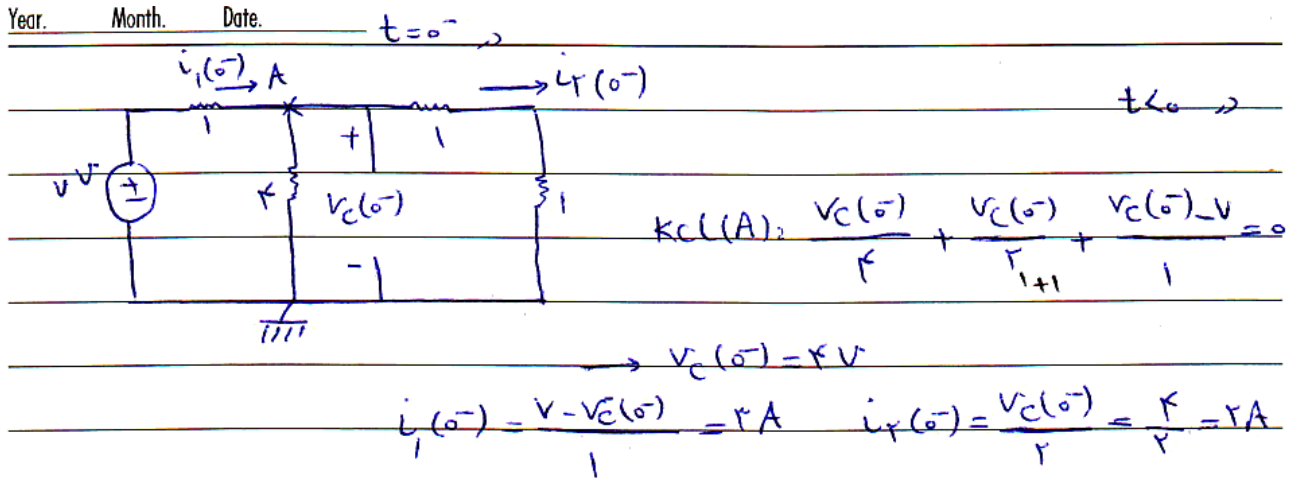 Year. Month. Date.
t=0⁻
i₁(0⁻) → A → i۲(0⁻)
t<0
۱ + ۱
۷ V ± ۴ V_C(0⁻) ۱
KCL(A): V_C(0⁻)/۴ + V_C(0⁻)/۲ + (V_C(0⁻)-۷)/۱ = 0
۱+۱
-
→ V_C(0⁻) = ۴ V
i₁(0⁻) = (۷-V_C(0⁻))/۱ = ۳ A i۲(0⁻) = V_C(0⁻)/۲ = ۴/۲ = ۲ A